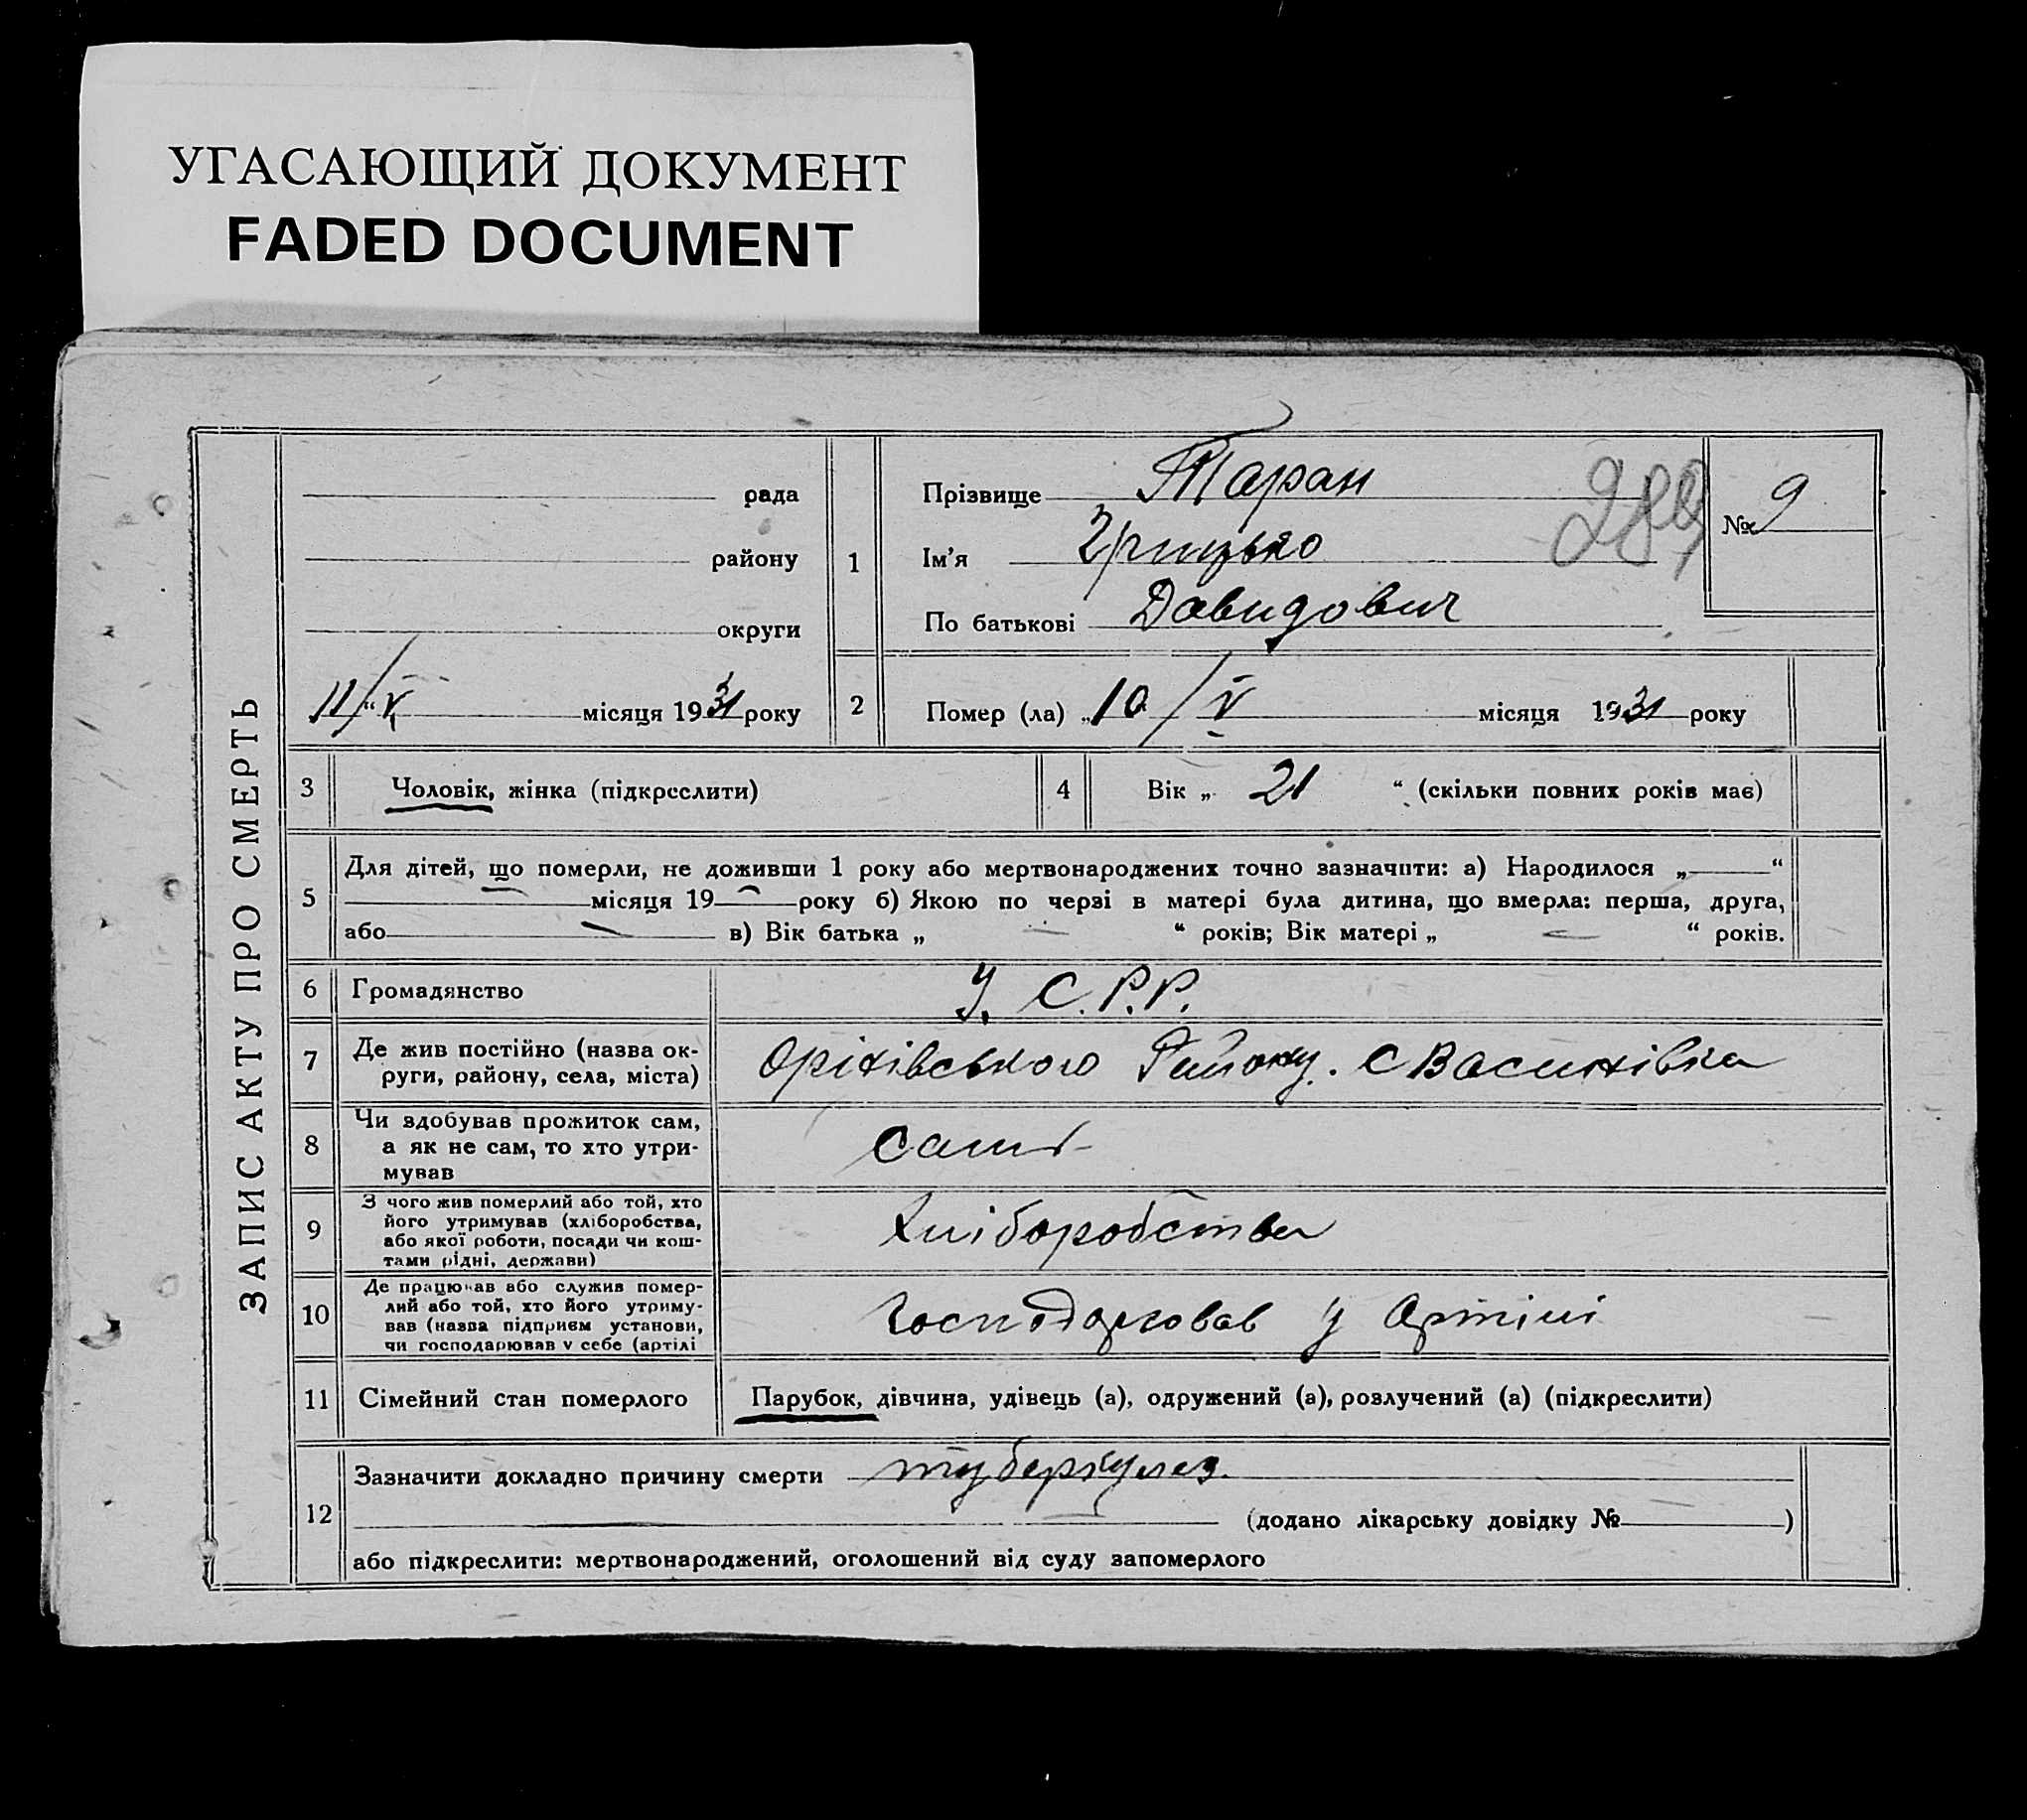 УГАСАЮЩИЙ ДОКУМЕНТ
FADED DOCUMENT
ЗАПИС АКТУ ПРО СМЕРТЬ
рада
району
округи
11/V місяця 1931 року
1
Прізвище Таран
Ім'я Грицько
По батькові Давидович
289
№ 9
2
Помер (ла) „10/V місяця 1931 року
3
Чоловік, жінка (підкреслити)
4
Вік „ 21 “ (скільки повних років має)
5
Для дітей, що померли, не доживши 1 року або мертвонароджених точно зазначити: а) Народилося „ “
місяця 19 року б) Якою по черзі в матері була дитина, що вмерла: перша, друга,
або в) Вік батька „ “ років; Вік матері „ “ років.
6
Громадянство
У. С.Р.Р.
7
Де жив постійно (назва ок-
руги, району, села, міста)
Оріхівського Району. с Василівка
8
Чи здобував прожиток сам,
а як не сам, то хто утри-
мував
сам
9
З чого жив померлий або той, хто
його утримував (хліборобства,
або якої роботи, посади чи кош-
тами рідні, держави)
Хліборобства
10
Де працював або служив помер-
лий або той, хто його утриму-
вав (назва підприєм установи,
чи господарював у себе (артілі
Господарював у Артілі
11
Сімейний стан померлого
Парубок, дівчина, удівець (а), одружений (а), розлучений (а) (підкреслити)
12
Зазначити докладно причину смерти туберкулез.
(додано лікарську довідку № )
або підкреслити: мертвонароджений, оголошений від суду запомерлого